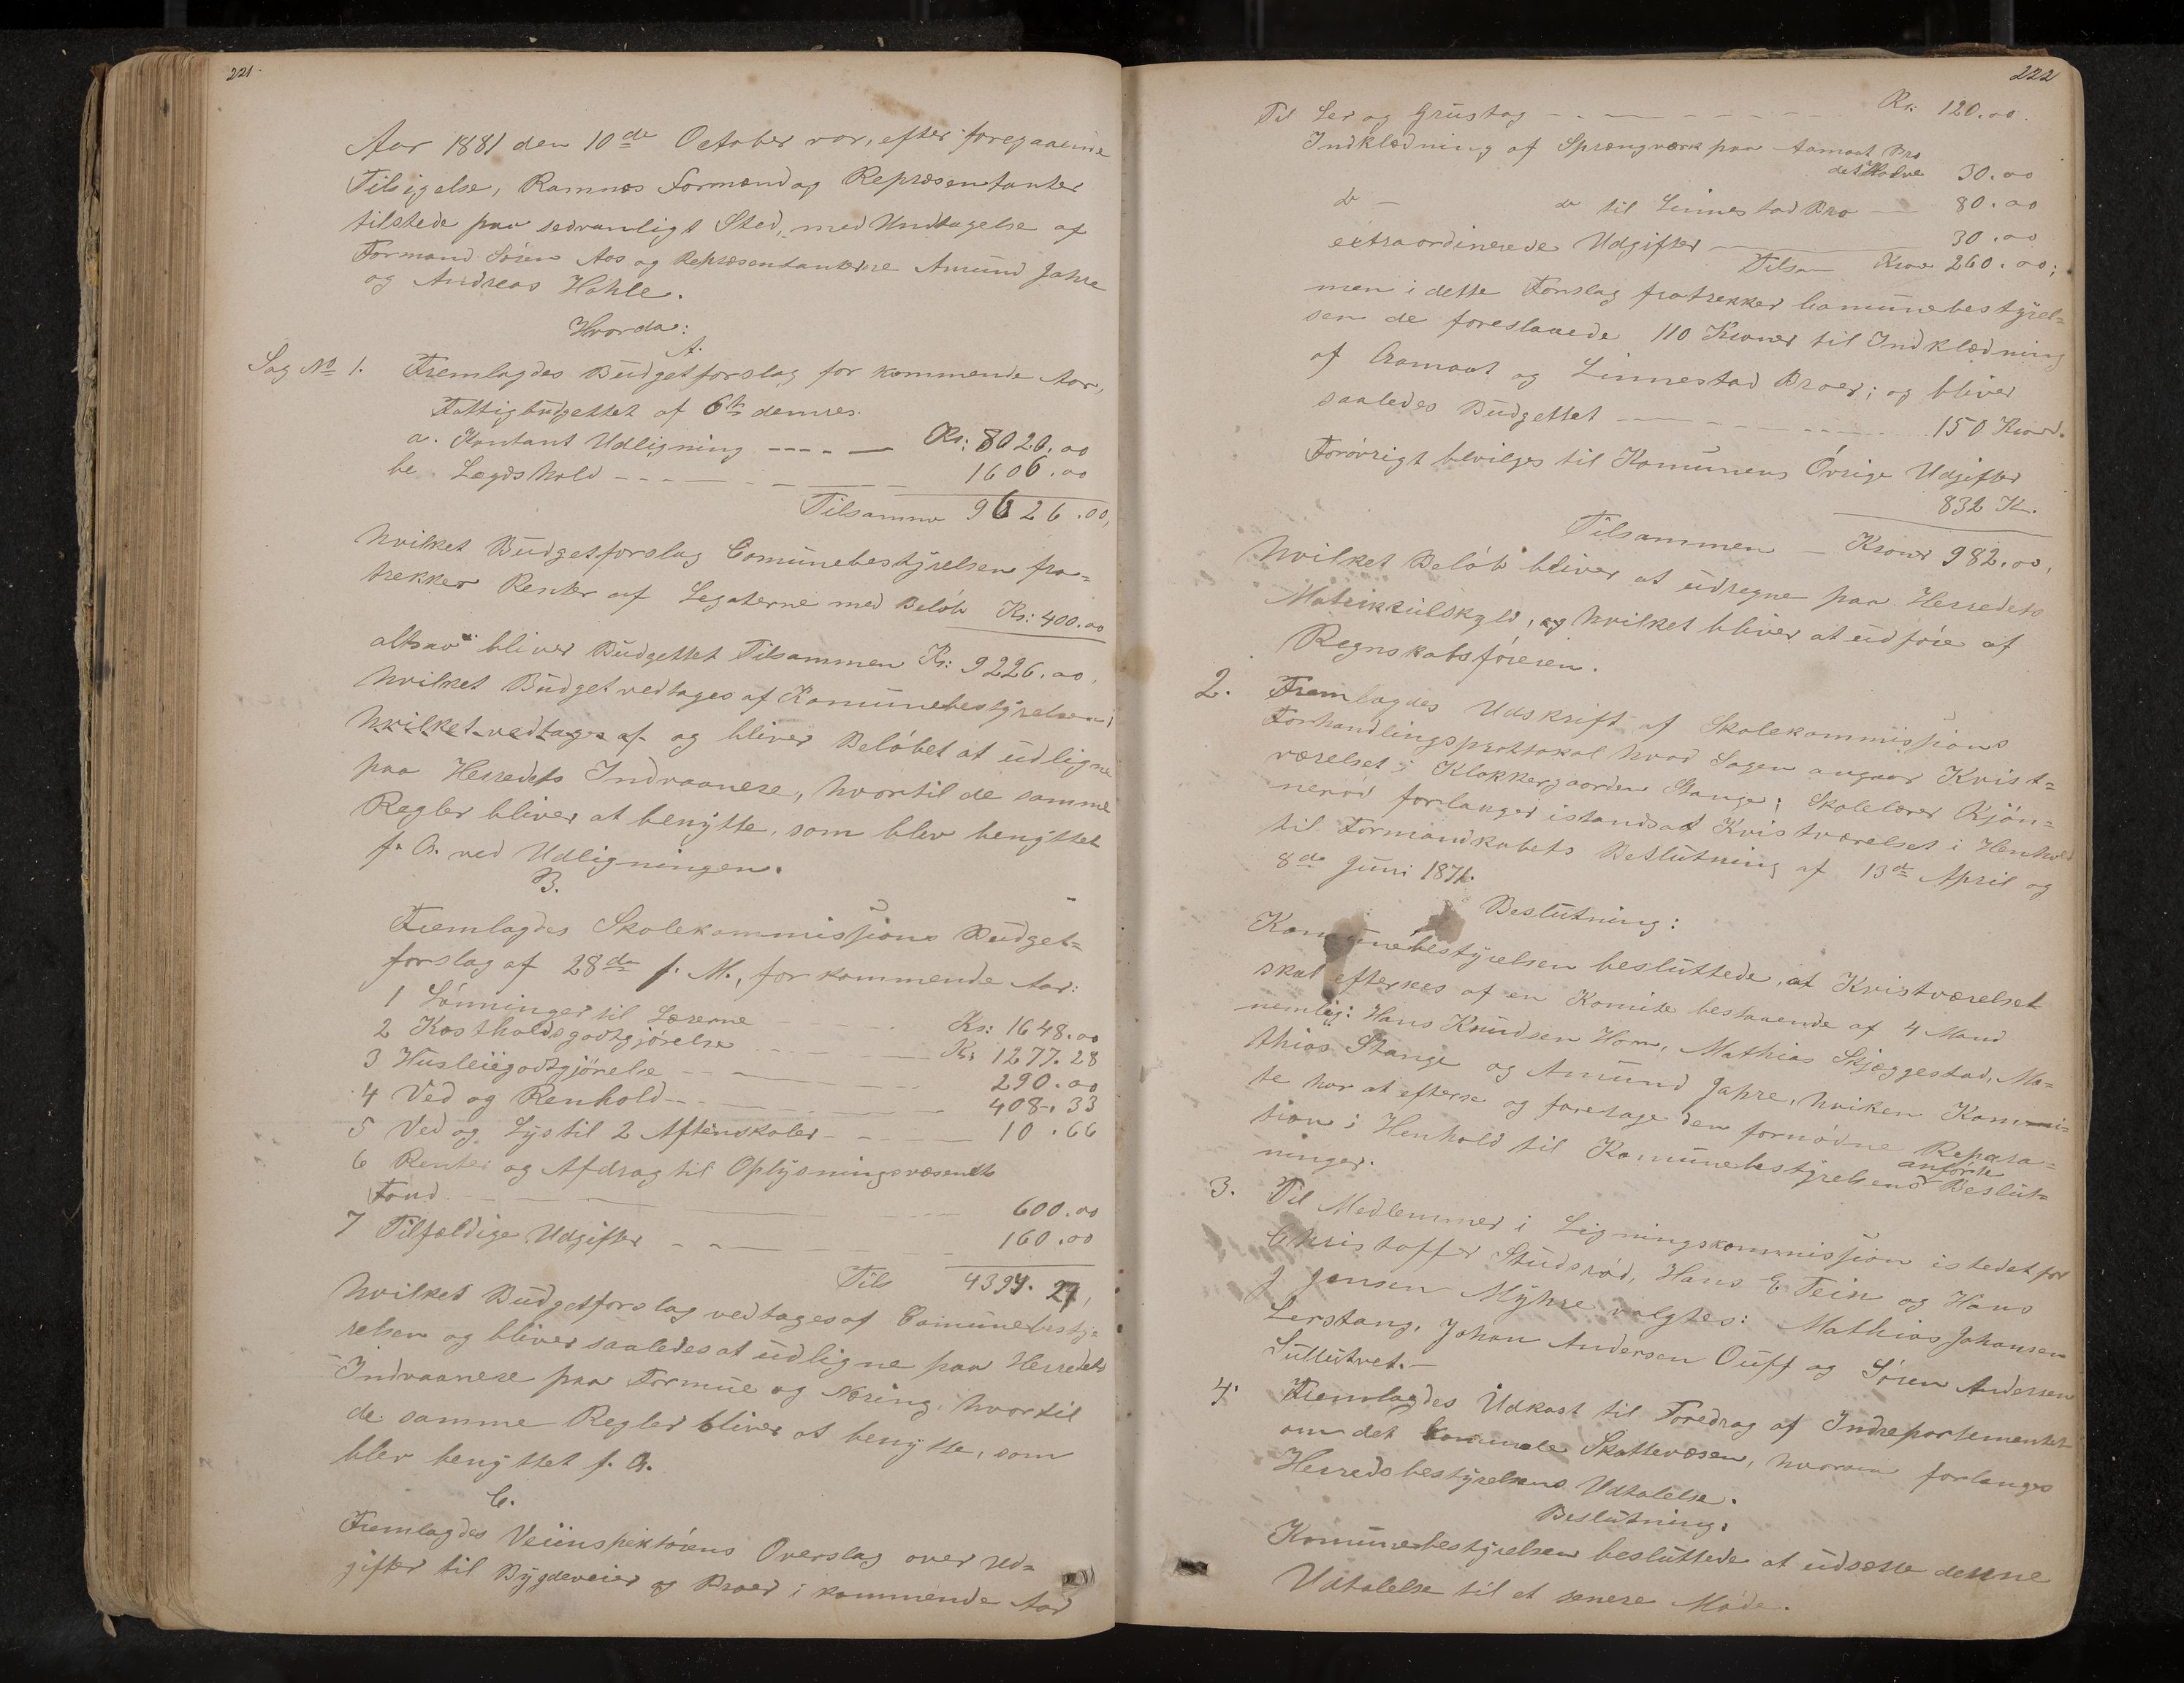 221
Aar 1881 den 10de October var, efter foregaaende
Tilsigelse, Ramnæs Formænd og Repræsentanter
tilstede paa sedvanligt Sted, med Undtagelse af
Formand Sören Aos og Repræsentanterne Amund Jahre
og Andreas Hahle.
Hvorda:
A.
Sag No 1. Fremlagdes Budgetforslag for kommende Aar,
Fattigbudgettet af 6te dennes.
a. Kontant Udligning ---- Kr: 8020.00
be. Lægdshold ---- 1606.00
Tilsamme 9626.00,
hvilket Budgetforslag Comunebestyrelsen fra=
trekker Renter af Legaterne med Beløb Kr: 400.00
altsaa bliver Budgettet Tilsammen Kr: 9226.00,
hvilket Budget vedtages af Komunebestyrelsen,
hvilket vedtages af og bliver Beløbet at udligne
paa Herredets Indvaanere, hvortil de samme
Regler bliver at benytte, som blev benyttet
f. A. ved Udligningen.
B.
Fremlagdes Skolekommissjons Budget=
forslag af 28de f. M., for kommende Aar:
1 Lönninger til Lærerne Kr: 1648.00
2 Kostholdsgodtgjörelse Kr 1277.28
3 Husleiegodtgjörelse 290.00
4 Ved og Renhold 408.33
5 Ved og Lys til 2 Aftenskoler 10.66
6 Renter og Afdrag til Oplysningsvæsenets
Fond 600.00
7 Tilfældige Udgifter 160.00
Tils 4394.27,
hvilket Budgetforslag vedtages af Comunebesty=
relsen og bliver saaledes at udligne paa Herredets
Indvaanere paa Formue og Næring, hvortil
de samme Regler bliver at benytte, som
blev benyttet f. A.
C.
Fremlagdes Veiinspektörens Overslag over Ud=
gifter til Bygdeveier og Broer i kommende Aar
222
Til Ler og Grustag ---- Kr: 120.00
Indklædning af Sprængværk paa Aamaat Bro
det Halve 30.00
do - do til Linnestad Bro 80.00
extraordinerede Udgifter 30.00
Tilsa Kroner 260.00;
men i dette Forslag fratrekker Comunebestyrel=
sen de foreslaaede 110 Kroner til Indklædning
af Aamaat og Linnestad Broer; og bliver
saaledes Budgettet ---- 150 Kroner.
Forövrigt bevilges til Komunens Övrige Udgifter
832 K.
Tilsammen - Kroner 982.00,
hvilket Beløb bliver at udregne paa Herredets
Matrikkulskyld, og hvilket bliver at udföre af
Regnskabsföreren.
2. Fremlagdes Udskrift af Skolekommissjons
Forhandlingsprotokol hvad Sagen angaar Kvist=
værelset i Klokkergaarden Stange; Skolelærer Kjön=
neröd forlanger istandsat Kvistværelset i Henhold
til Formandskabets Beslutning af 13de April og
8de Juni 1871.
Beslutning:
Komunebestyrelsen besluttede, at Kvistværelset
skal eftersees af en Komite bestaaende af 4 Mand
nemlig: Hans Knudsen Hom, Mathias Skjæggestad, Ma=
thias Stange og Amund Jahre, hviken Kommi=
te har at efterse og foretage den fornödne Repara=
tion i Henhold til Komunebestyrelsens anförte Beslut=
ninger.
3. Til Medlemmer i Ligningskommissjon istedet for
Christoffer Studsröd, Hans E. Tein og Hans
J Jensen Myhre valgtes: Mathias Johansen
Lerstang, Johan Andersen Ouff og Sören Andersen
Sullutvet.-
4. Fremlagdes Udkast til Foredrag af Indrepartementet
om det komunale Skattevæsen, hvorom forlanges
Herredsbestyrelsens Udtalelse.
Beslutning:
Komunebestyrelsen besluttede at udsætte denne
Udtalelse til et senere Möde.